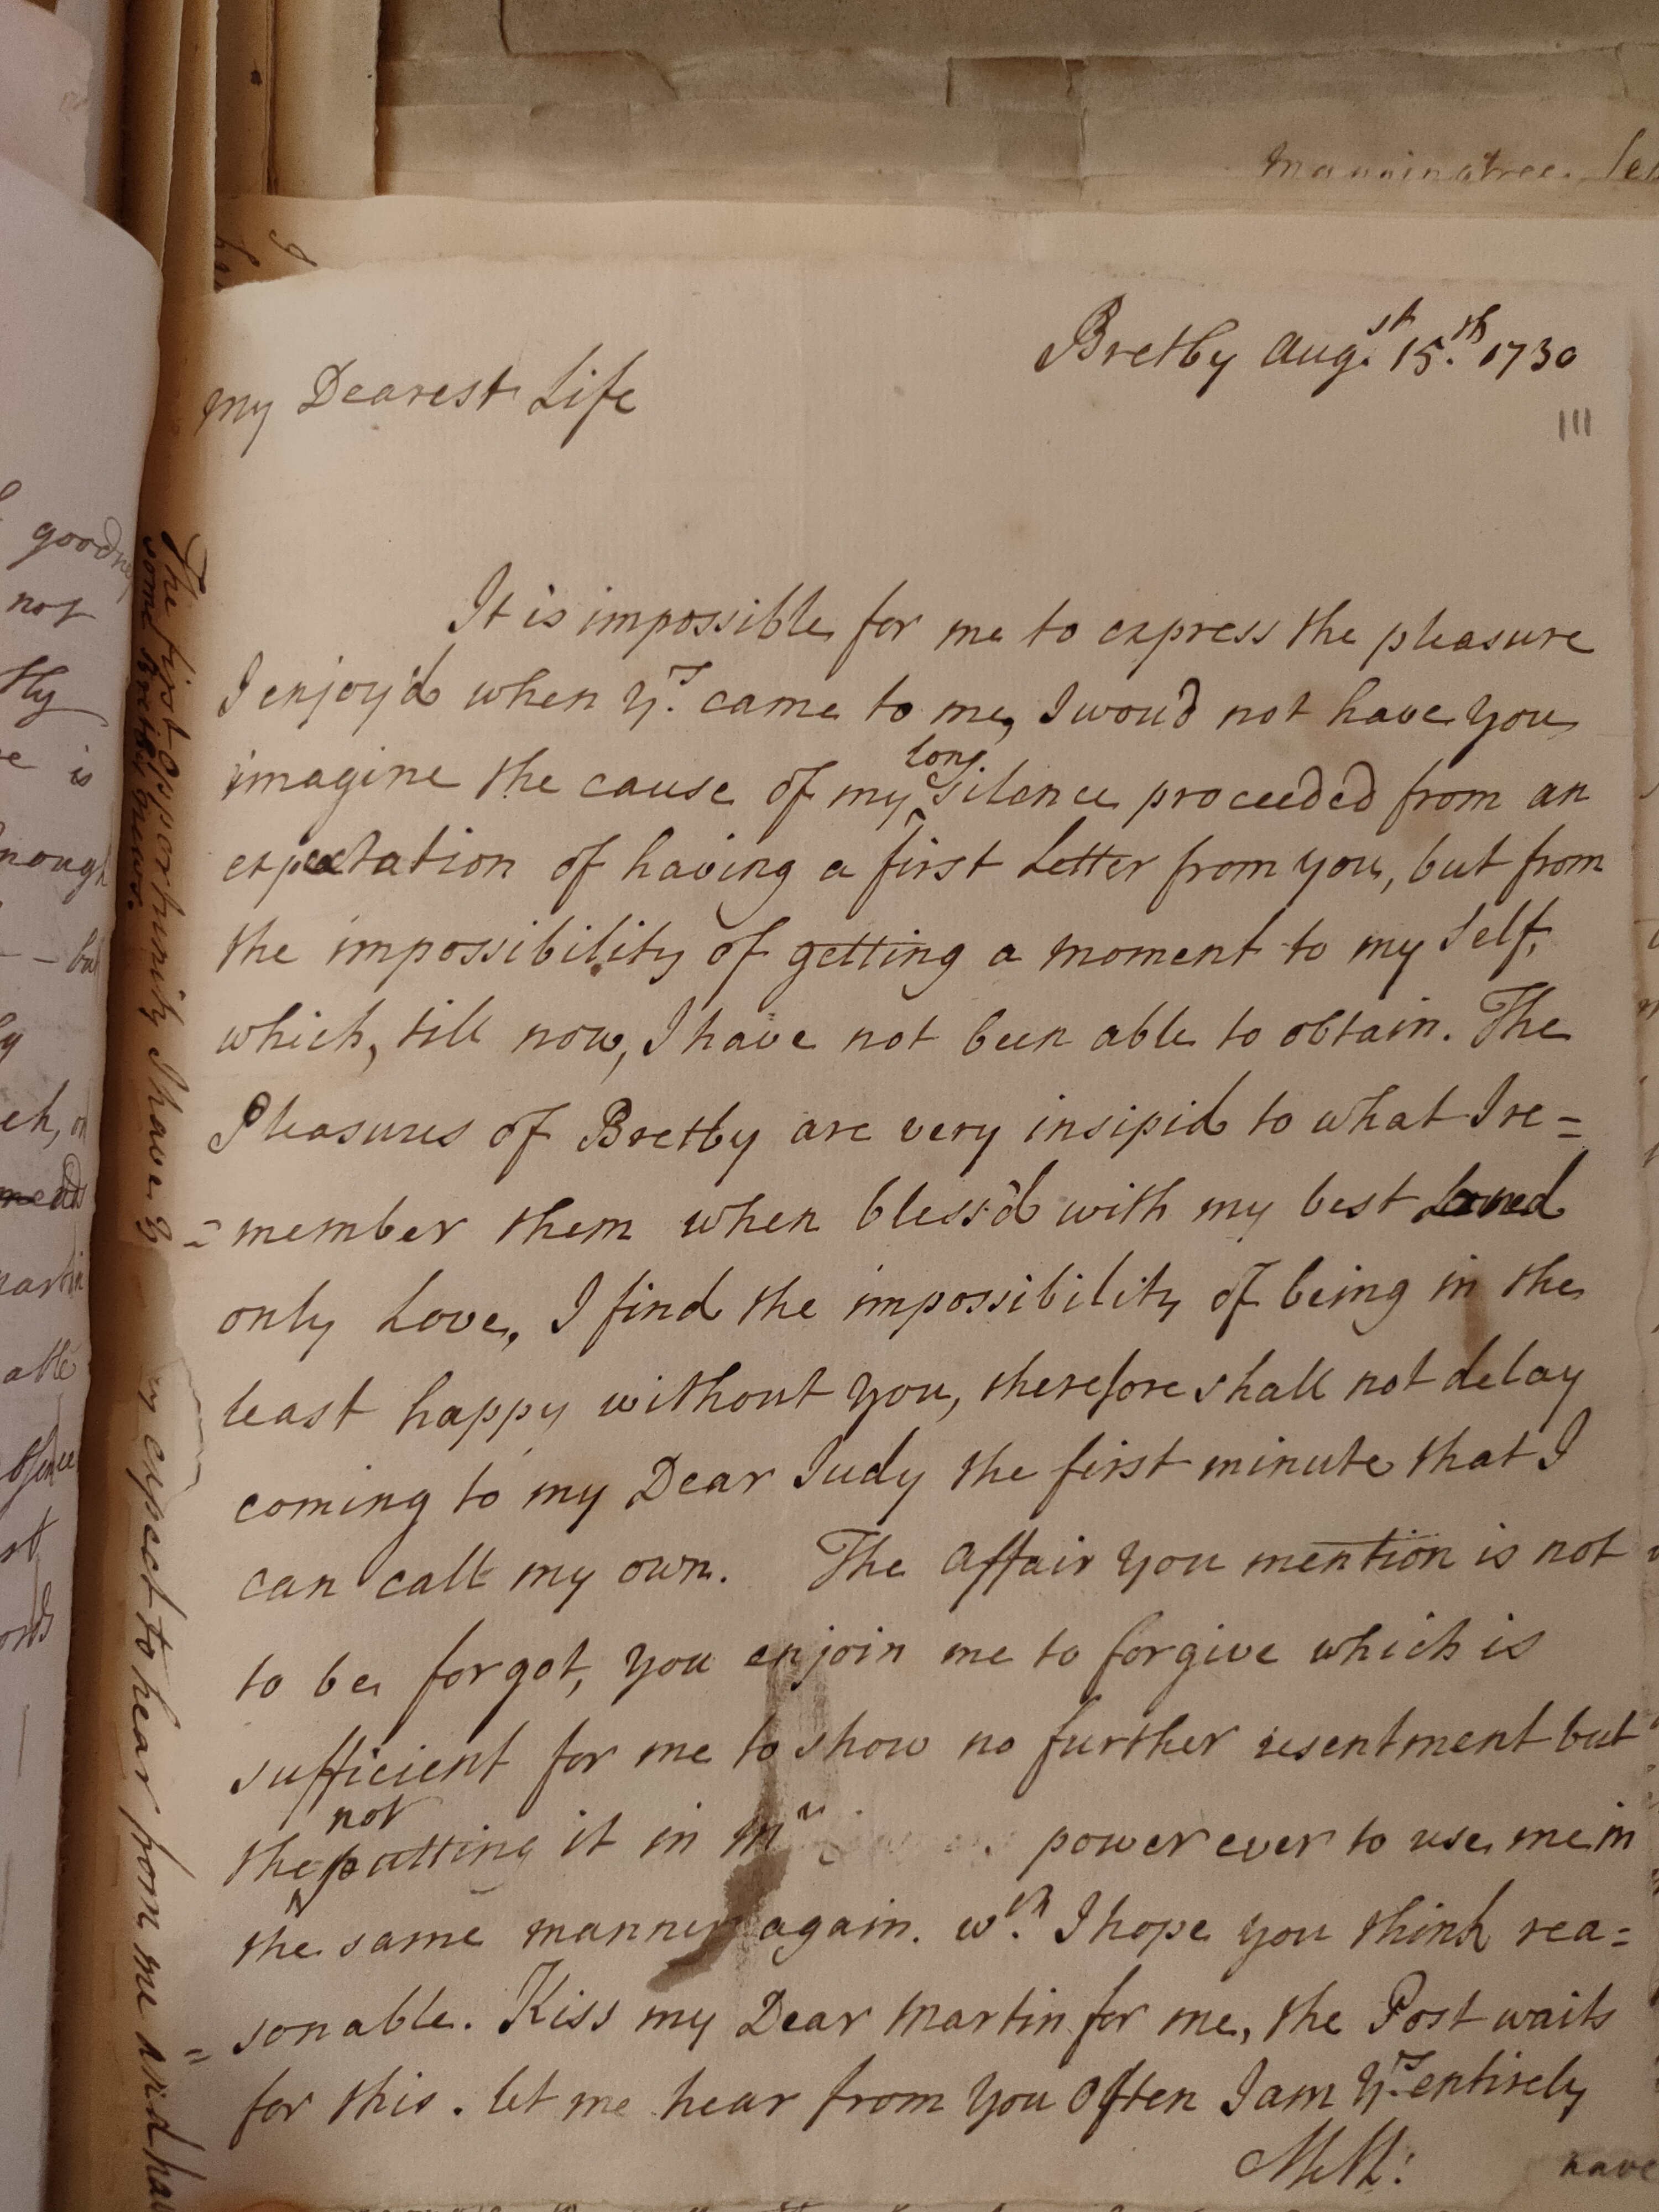 Manningtree.
Bretby Aug.st 15.th 1730
My Dearest Life
111
It is impossible for me to express the pleasure
I enjoy'd when y.rs came to me, I wou'd not have you
imagine the cause of my ^long silence proceeded from an
expectation of having a first Letter from you, but from
the impossibility of getting a moment to my self,
which, till now, I have not been able to obtain. The
Pleasures of Bretby are very insipid to what I re=
=member them when bless'd with my best loved
only Love, I find the impossibility of being in the
least happy without you, therefore shall not delay
coming to my Dear Judy the first minute that I
can call my own. The affair you mention is not
to be forgot, you enjoin me to forgive which is
sufficient for me to show no further resentment but
the ^not putting it in M power ever to use me in
the same manner again. w.ch I hope you think rea=
=sonable. Kiss my Dear Martin for me, the Post waits
for this. let me hear from you often I am y.rs entirely
MM:
have
The first opportunity I have y expect to hear from me and have
some Bretby news.
goodness
not
is
enough
but
Martin
able